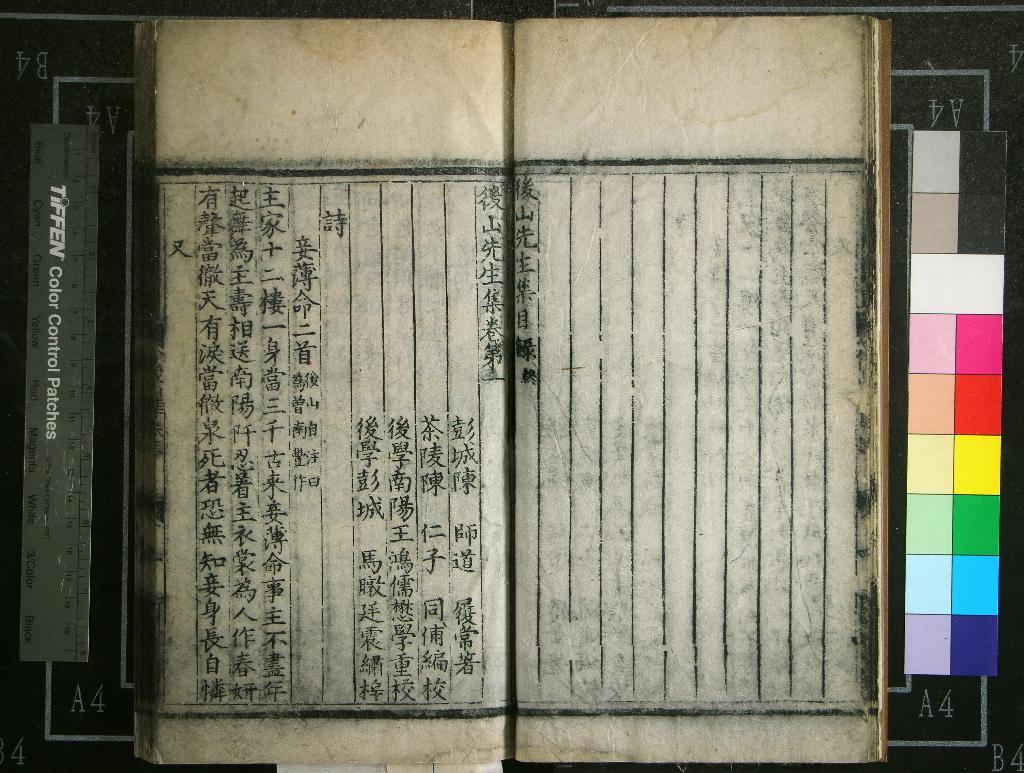 後山先生集目錄終
後山先生集卷第一
彭城陳 師道 履常著
茶陵陳 仁子 同俌編校
後學南陽王鴻儒懋學重校
後學彭城 馬暾廷震繡梓
詩
妾薄命二首 後山自注曰為曾南豐作
主家十二樓一身當三千古來妾薄命事主不盡年
起舞為主壽相送南陽阡忍着主衣裳為人作春妍
有聲當徹天有淚當徹泉死者恐無知妾身長自憐
又
TIFFEN Color Control Patches
Blue Cyan Green Yellow Red Magenta White 3/Color Black
B4
A4
A4
A4
A4
B4
B4